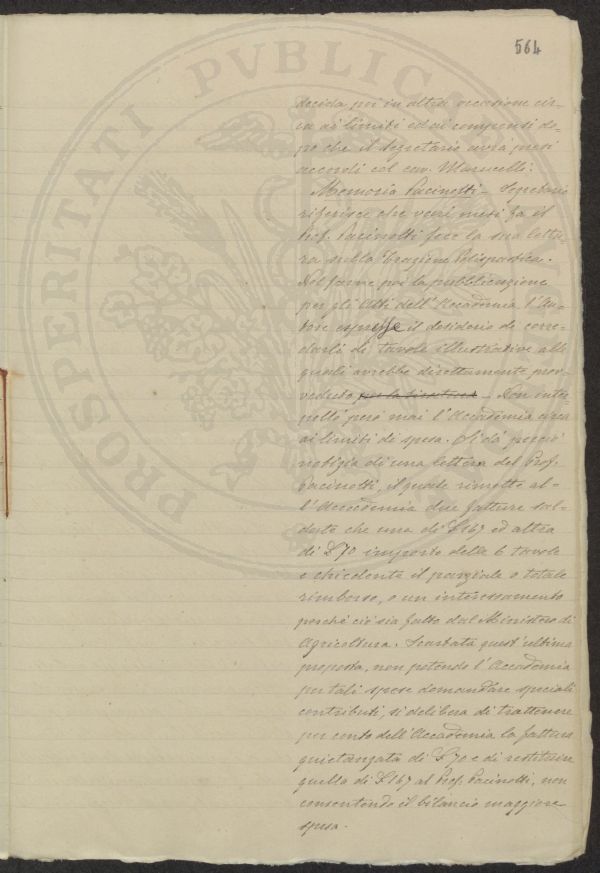 564
PROSPERITATI PVBLICAE
decida poi in altra occasione cir-
ca ai limiti ed ai compensi do-
po che il Segretario avrà presi
accordi col cav. Marucelli.
Memoria Pacinotti – Segretario
riferisce che varii mesi fa il
Prof. Pacinotti fece la sua lettu-
ra sulla Trazione Polispastica.
Nel farne poi la pubblicazione
per gli Atti dell'Accademia l'Au-
tore espresse il desiderio di corre-
darla di tavole illustrative alle
quali avrebbe direttamente prov-
veduto – Non inter
pellò però mai l'Accademia circa
ai limiti di spesa. Si dà perciò
notizia di una lettera del Prof.
Pacinotti, il quale rimette al-
l'Accademia due fatture sal-
date che una di £167 ed altra
di £70 importo delle 6 tavole
e chiedente il parziale o totale
rimborso, o un interessamento
perchè ciò sia fatto dal Ministero di
Agricoltura. Scartata quest'ultima
proposta, non potendo l'Accademia
per tali spese domandare speciali
contributi, si delibera di trattenere
per conto dell'Accademia la fattura
quietanzata di £70 e di restituire
quella di £167 al Prof. Pacinotti, non
consentendo il bilancio maggiore
spesa.